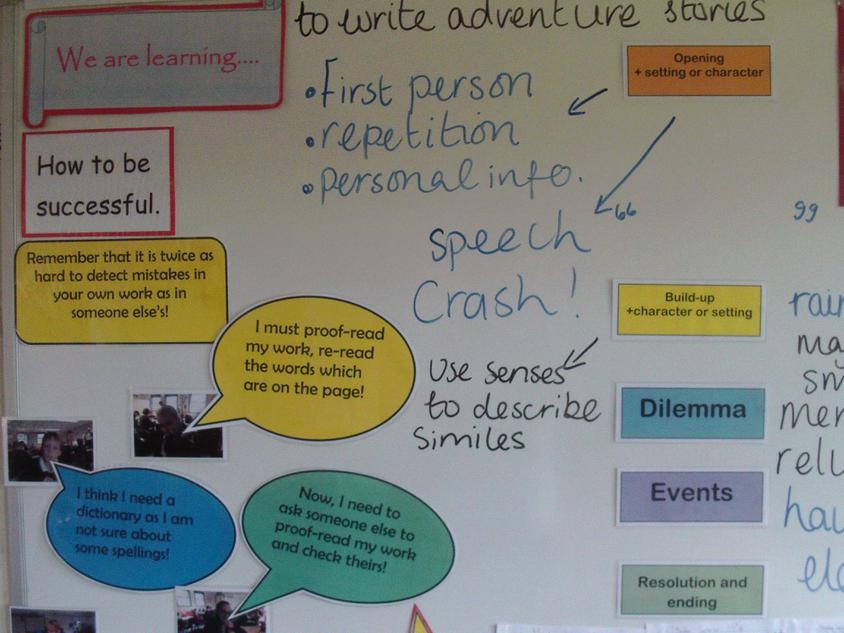 to write adventure stories
We are learning....
How to be
successful.
Remember that it is twice as
hard to detect mistakes in
your own work as in
someone else's!
I must proof-read
my work, re-read
the words which
are on the page!
I think I need a
dictionary as I am
not sure about
some spellings!
Now, I need to
ask someone else to
proof-read my work
and check theirs!
•First person
•repetition
•personal info.
speech
Crash!
Use senses
to describe
similes
Opening
+ setting or character
66 99
Build-up
+character or setting
Dilemma
Events
Resolution and
ending